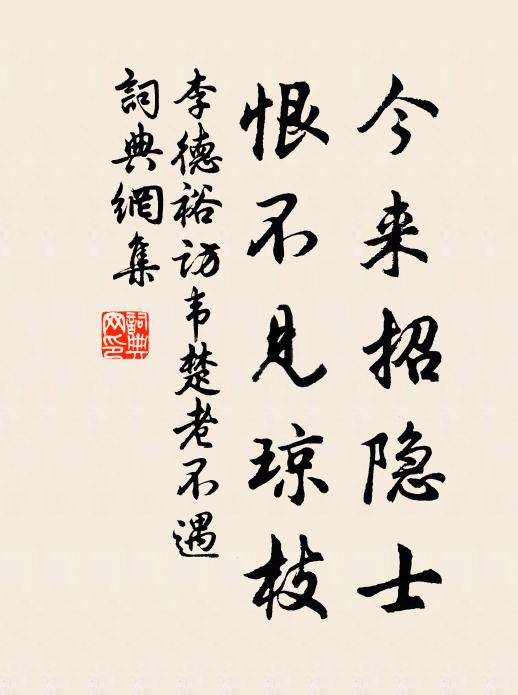 今来招隐士
恨不见琼枝
李德裕访韦楚老不遇
词典網集
詞典网印